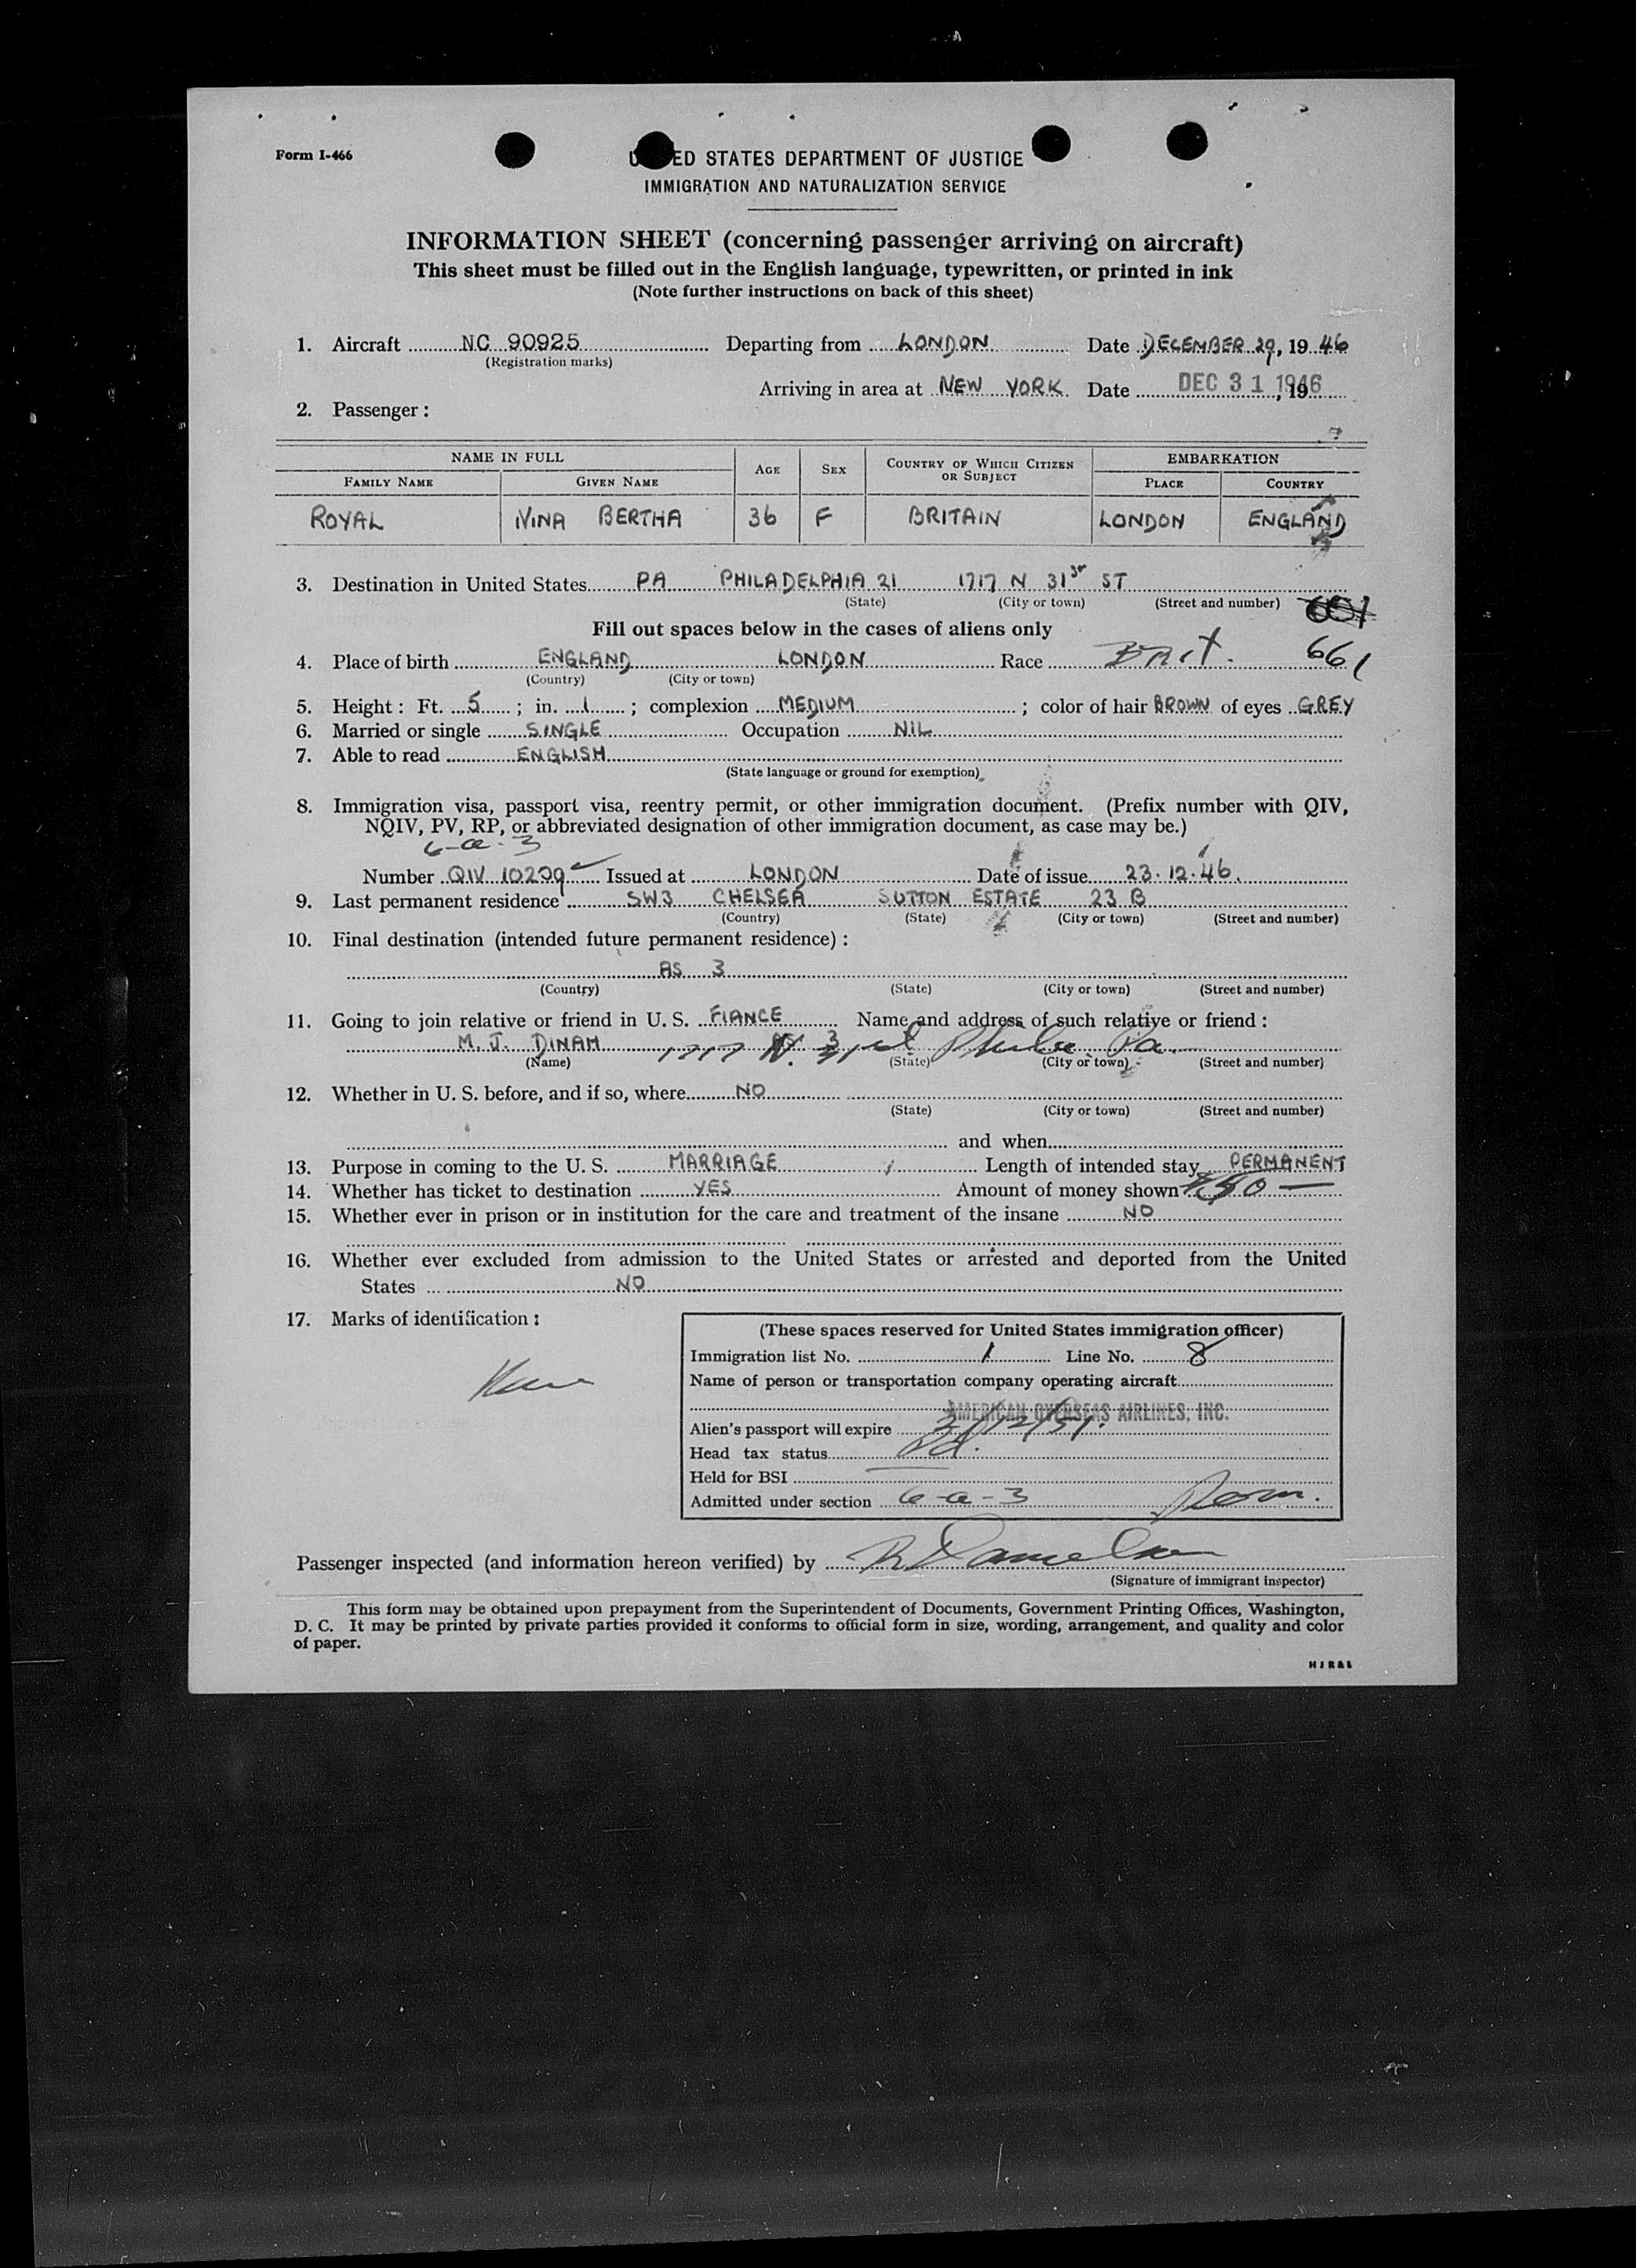 Form I-466
UNITED STATES DEPARTMENT OF JUSTICE
IMMIGRATION AND NATURALIZATION SERVICE
INFORMATION SHEET (concerning passenger arriving on aircraft)
This sheet must be filled out in the English language, typewritten, or printed in ink
(Note further instructions on back of this sheet)
1. Aircraft NC 90925 Departing from LONDON Date DECEMBER 29, 19 46
(Registration marks)
Arriving in area at NEW YORK Date DEC 31 1946, 19
2. Passenger:
NAME IN FULL AGE SEX COUNTRY OF WHICH CITIZEN OR SUBJECT EMBARKATION
FAMILY NAME GIVEN NAME PLACE COUNTRY
ROYAL NINA BERTHA 36 F BRITAIN LONDON ENGLAND
3. Destination in United States PA PHILADELPHIA 21 1717 N 31st ST
(State) (City or town) (Street and number) 601
Fill out spaces below in the cases of aliens only
4. Place of birth ENGLAND LONDON Race Brit. 661
(Country) (City or town)
5. Height: Ft. 5 ; in. 1 ; complexion MEDIUM ; color of hair BROWN of eyes GREY
6. Married or single SINGLE Occupation NIL
7. Able to read ENGLISH
(State language or ground for exemption)
8. Immigration visa, passport visa, reentry permit, or other immigration document. (Prefix number with QIV,
NQIV, PV, RP, or abbreviated designation of other immigration document, as case may be.)
6-a-3
Number QIV 10299 Issued at LONDON Date of issue 23.12.46.
9. Last permanent residence SW3 CHELSEA SUTTON ESTATE 23 B
(Country) (State) (City or town) (Street and number)
10. Final destination (intended future permanent residence):
AS 3
(Country) (State) (City or town) (Street and number)
11. Going to join relative or friend in U. S. FIANCE Name and address of such relative or friend:
M. J. DINAH AS 3 1717 N. 31st Phila. Pa.
(Name) (State) (City or town) (Street and number)
12. Whether in U. S. before, and if so, where NO
(State) (City or town) (Street and number)
and when
13. Purpose in coming to the U. S. MARRIAGE Length of intended stay PERMANENT
14. Whether has ticket to destination YES Amount of money shown $50 —
15. Whether ever in prison or in institution for the care and treatment of the insane NO
16. Whether ever excluded from admission to the United States or arrested and deported from the United
States NO
17. Marks of identification:
(These spaces reserved for United States immigration officer)
Immigration list No. 1 Line No. 8
Name of person or transportation company operating aircraft
AMERICAN OVERSEAS AIRLINES, INC.
Alien's passport will expire 21/12/51.
Head tax status Pd.
Held for BSI
Admitted under section 6-a-3 Perm.
Passenger inspected (and information hereon verified) by
(Signature of immigrant inspector)
This form may be obtained upon prepayment from the Superintendent of Documents, Government Printing Offices, Washington,
D. C. It may be printed by private parties provided it conforms to official form in size, wording, arrangement, and quality and color
of paper.